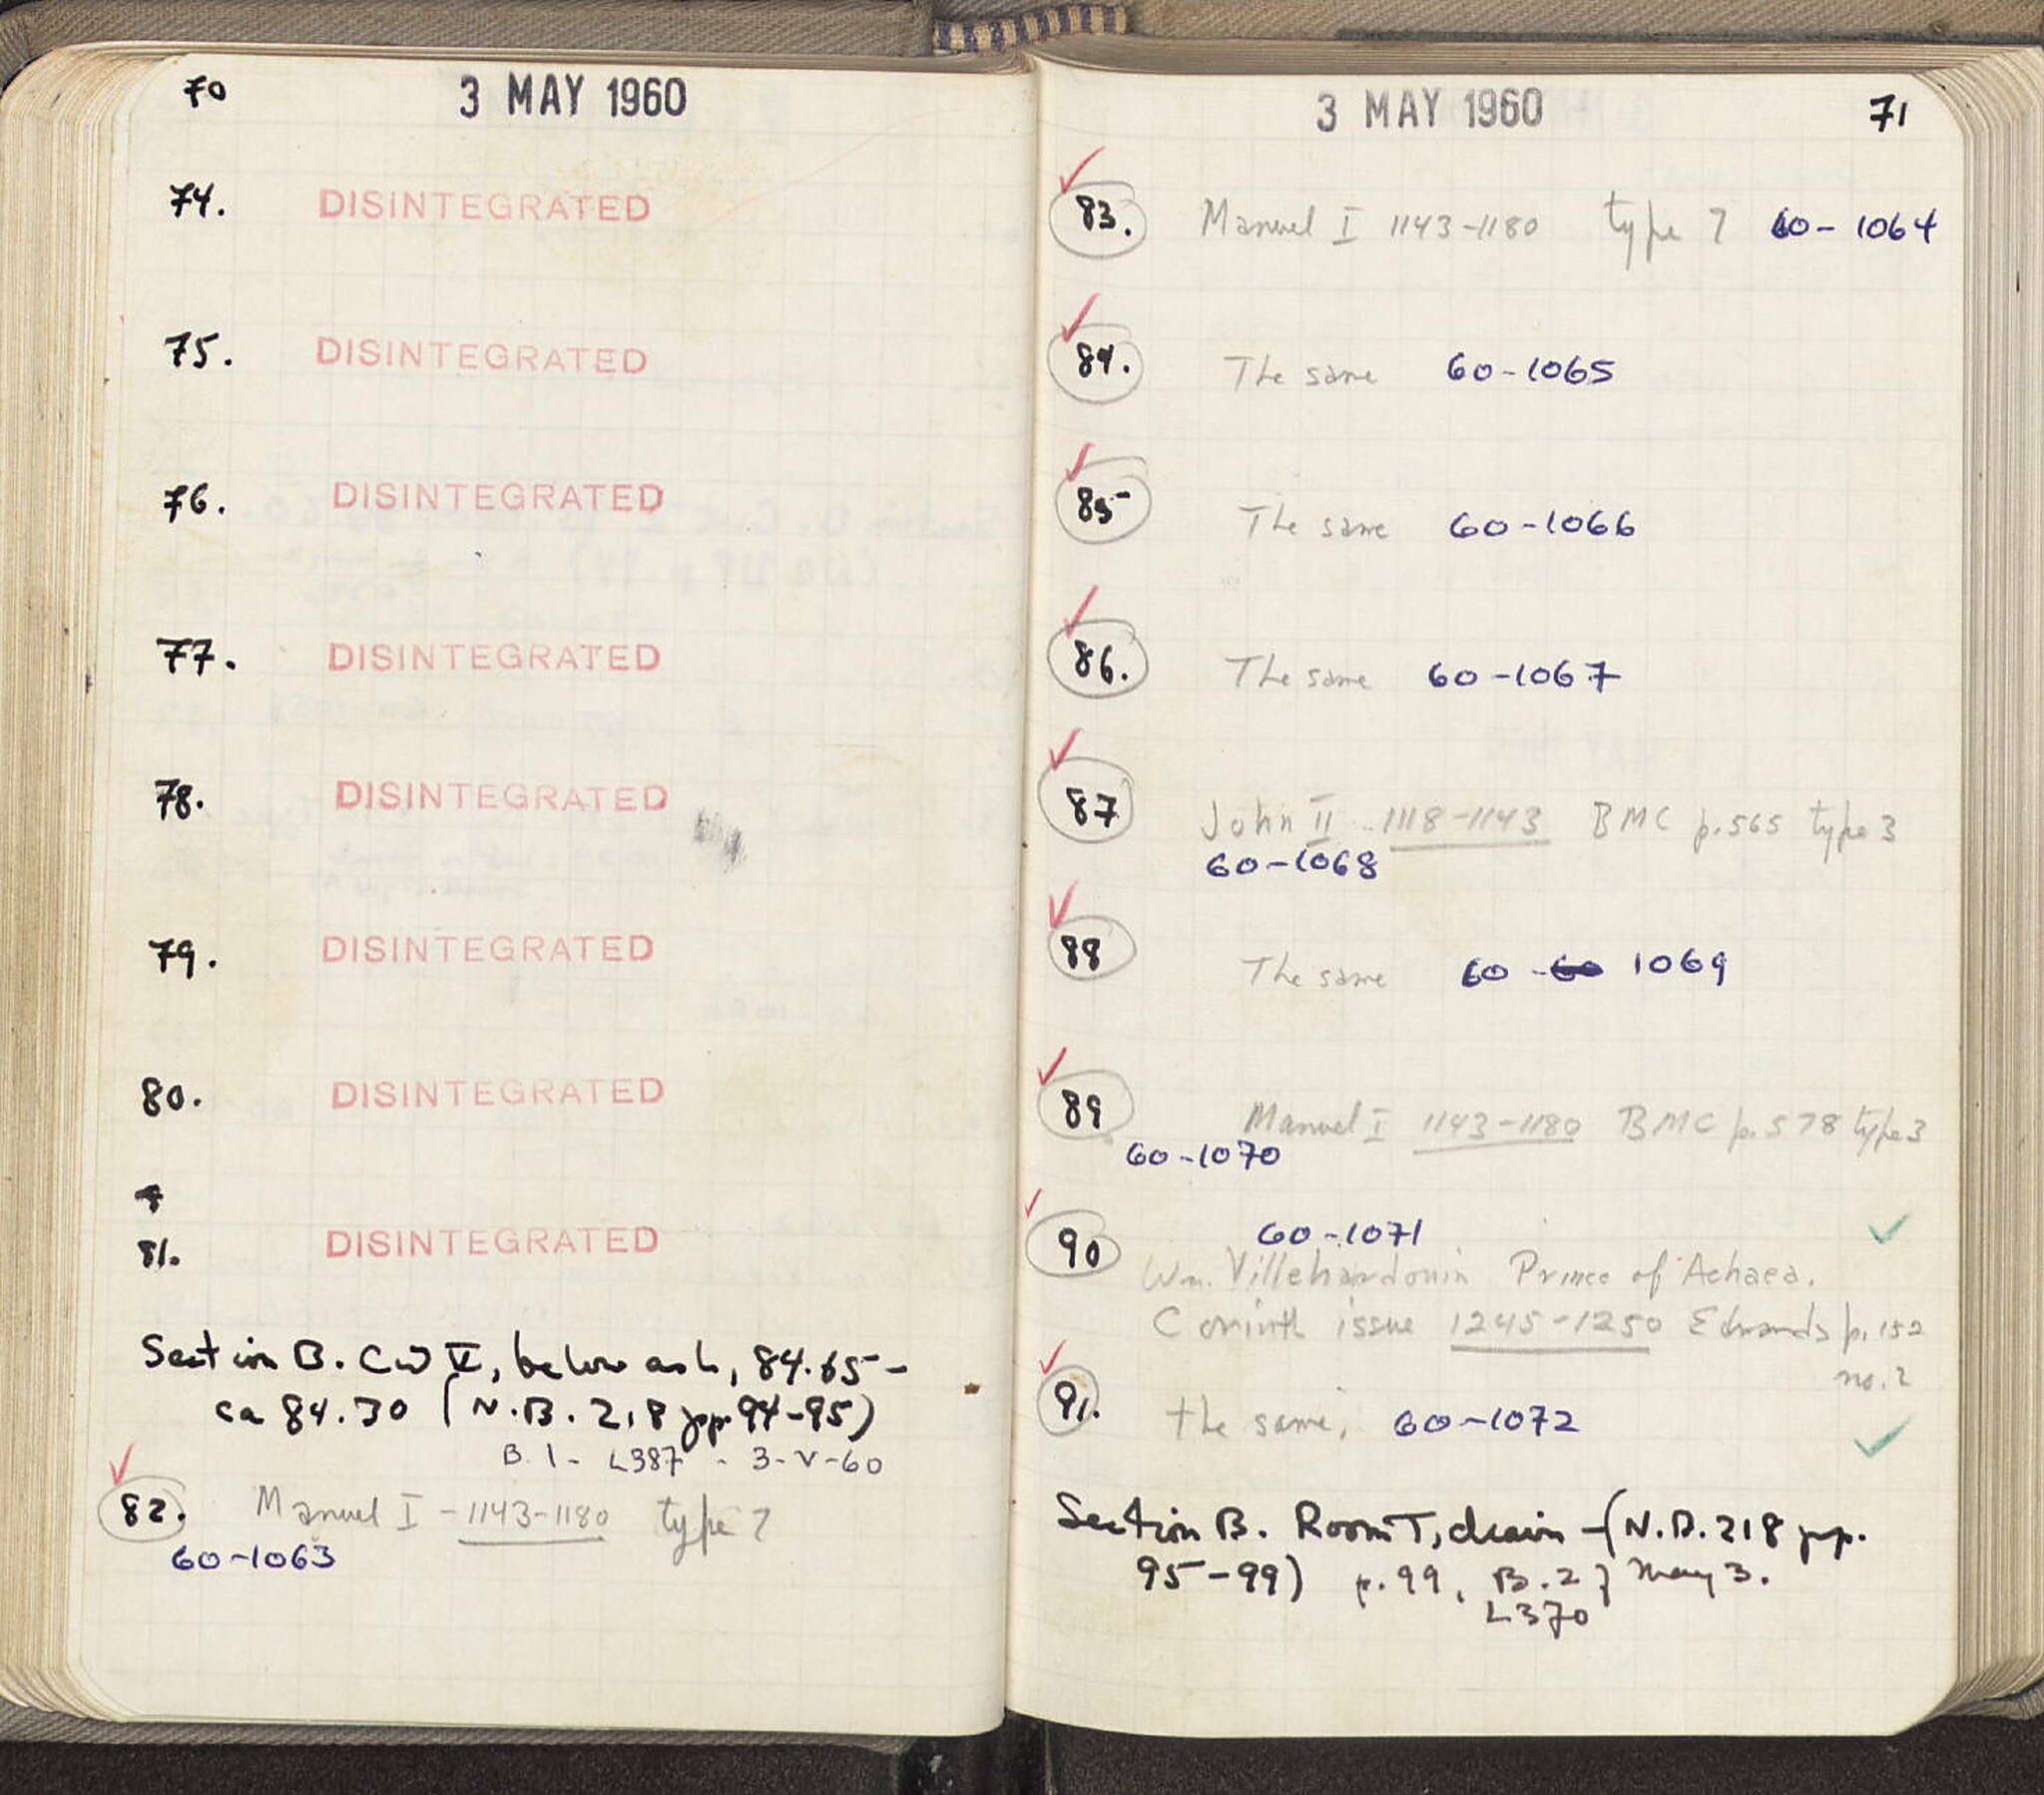 70 3 MAY 1960
74. DISINTEGRATED
75. DISINTEGRATED
76. DISINTEGRATED
77. DISINTEGRATED
78. DISINTEGRATED
79. DISINTEGRATED
80. DISINTEGRATED
81. DISINTEGRATED
Section B. CW V, below ash, 84.65-
ca 84.30 (N.B. 218 pp. 94-95)
B. 1 - L387 - 3-V-60
82. Manuel I - 1143-1180 type 7
60-1063
3 MAY 1960 71
83. Manuel I 1143-1180 type 7 60-1064
84. The same 60-1065
85 The same 60-1066
86. The same 60-1067
87 John II 1118-1143 BMC p.565 type 3
60-1068
88 The same 60 - 1069
89 Manuel I 1143-1180 BMC p.578 type 3
60-1070
60-1071
90 Wm. Villehardouin Prince of Achaea.
Corinth issue 1245-1250 Edwards p.152
no.2
91. the same, 60-1072
Section B. Room T, drain - (N.B. 218 pp.
95-99) p.99, B.2} May 3.
L370